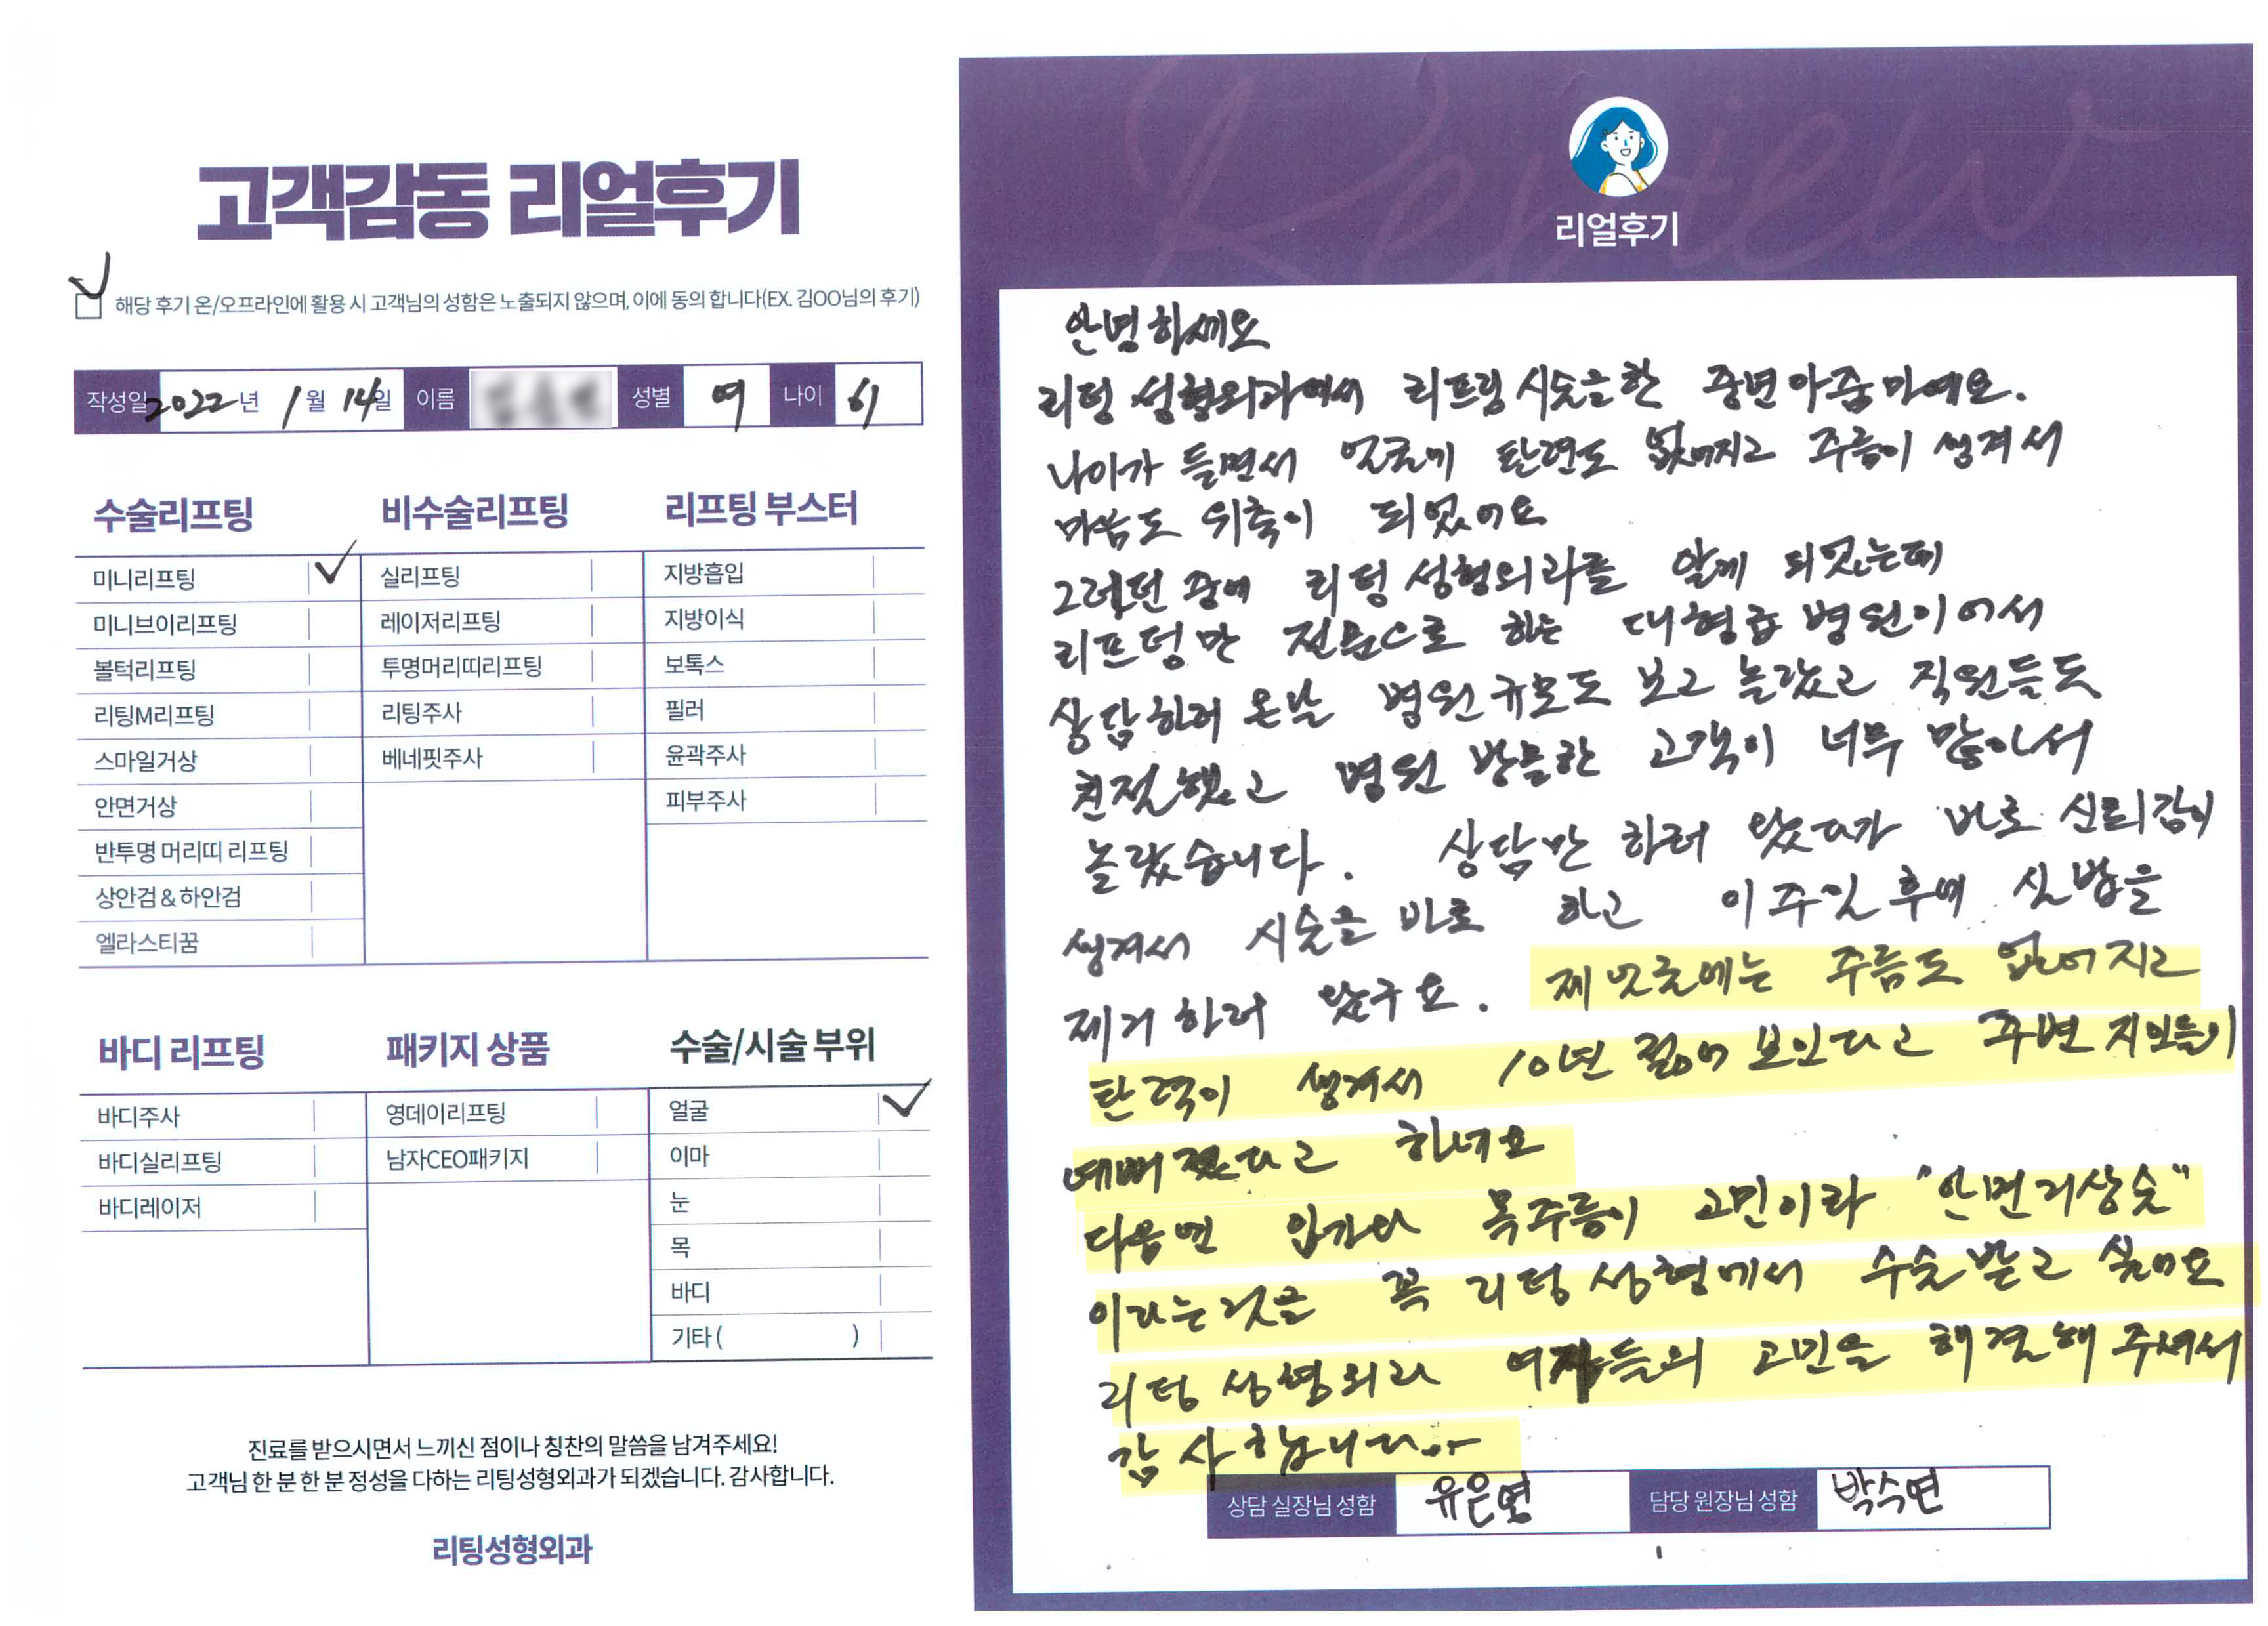 고객감동 리얼후기
해당 후기 온/오프라인에 활용 시 고객님의 성함은 노출되지 않으며, 이에 동의 합니다(EX. 김OO님의 후기)
작성일 2022년 1월 14일 이름 성별 여 나이 61
수술리프팅
미니리프팅
미니브이리프팅
볼턱리프팅
리팅M리프팅
스마일거상
안면거상
반투명 머리띠 리프팅
상안검 & 하안검
엘라스티꿈
비수술리프팅
실리프팅
레이저리프팅
투명머리띠리프팅
리팅주사
베네핏주사
리프팅 부스터
지방흡입
지방이식
보톡스
필러
윤곽주사
피부주사
바디 리프팅
바디주사
바디실리프팅
바디레이저
패키지 상품
영데이리프팅
남자CEO패키지
수술/시술 부위
얼굴
이마
눈
목
바디
기타 ( )
진료를 받으시면서 느끼신 점이나 칭찬의 말씀을 남겨주세요!
고객님 한 분 한 분 정성을 다하는 리팅성형외과가 되겠습니다. 감사합니다.
리팅성형외과
Review
리얼후기
안녕하세요
리팅 성형외과에서 리프팅 시술을한 중년아줌마예요.
나이가 들면서 얼굴에 탄력도 없어지고 주름이 생겨서
마음도 위축이 되었어요
그러던 중에 리팅 성형외과를 알게 되었는데
리프팅만 전문으로 하는 대형급 병원이어서
상담하러 온날 병원 규모도 보고 놀랐고 직원들도
친절했고 병원 방문한 고객이 너무 많아서
놀랐습니다. 상담만 하러 왔다가 바로 신뢰감이
생겨서 시술을 바로 하고 이주일 후에 실밥을
제거 하러 왔구요. 제 얼굴에는 주름도 없어지고
탄력이 생겨서 10년 젊어 보인다고 주변 지인들이
예뻐졌다고 하네요
다음번 목주름이 고민이라 "안면거상술"
이라는것을 꼭 리팅 성형에서 수술받고 싶어요
리팅 성형외과 여자들의 고민을 해결해 주셔서
감사합니다..
상담 실장님 성함 유은영 담당 원장님 성함 박수연